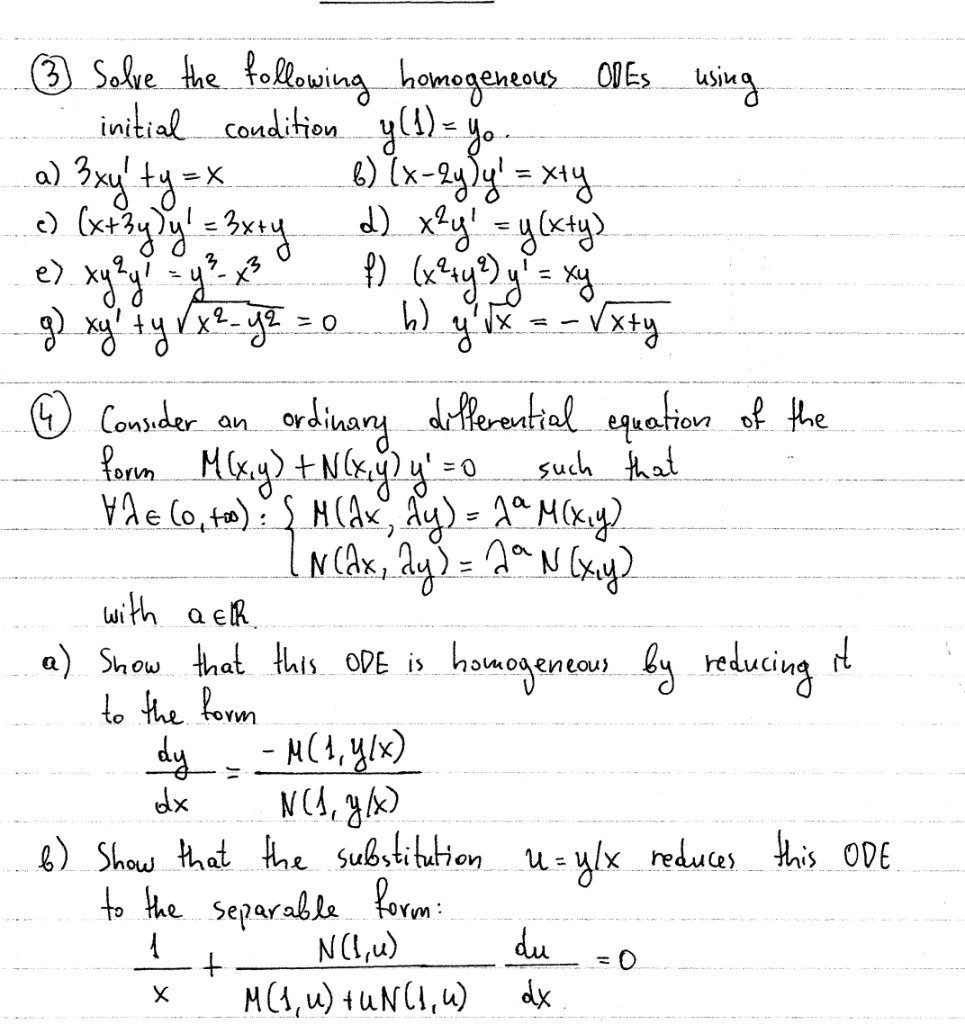 ③ Solve the following homogeneous ODEs using
initial condition y(1) = y₀.
a) 3xy' + y = x b) (x-2y)y' = x+y
c) (x+3y)y' = 3x+y d) x²y' = y(x+y)
e) xy²y' = y³ - x³ f) (x²+y²)y' = xy
g) xy' + y√(x²-y²) = 0 h) y'√x = -√(x+y)
④ Consider an ordinary differential equation of the
form M(x,y) + N(x,y) y' = 0 such that
∀λ∈(0,+∞): { M(λx, λy) = λᵃ M(x,y)
N(λx, λy) = λᵃ N(x,y)
with a∈ℝ.
a) Show that this ODE is homogeneous by reducing it
to the form
dy/dx = -M(1, y/x) / N(1, y/x)
b) Show that the substitution u = y/x reduces this ODE
to the separable form:
1/x + N(1,u) / (M(1,u) + uN(1,u)) du/dx = 0